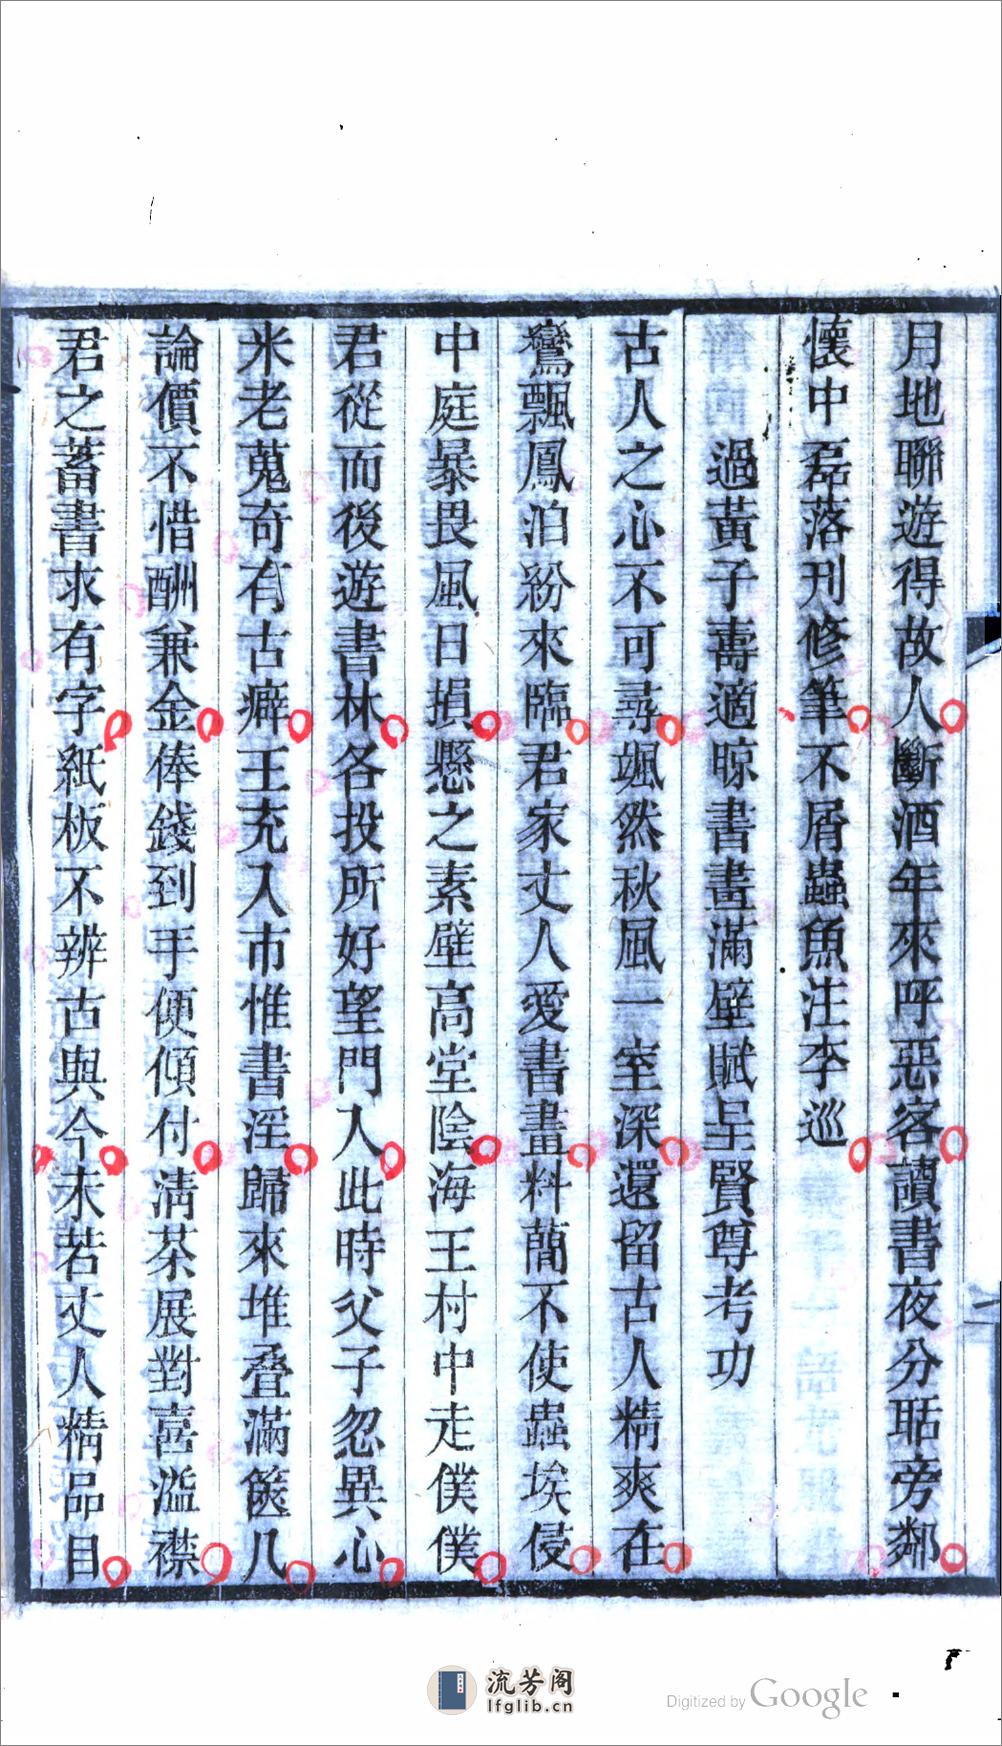 月地聯遊得故人斷酒年來呼惡客讀書夜分聒旁鄰
懷中磊落刊修筆不屑蟲魚注李巡
過黃子壽適晾書畫滿壁賦呈賢尊考功
古人之心不可尋颯然秋風一室深還留古人精爽在
鸞飄鳳泊紛來臨君家丈人愛書畫料簡不使蟲埃侵
中庭暴畏風日損懸之素壁高堂陰海王村中走僕僕
君從而後遊書林各投所好望門入此時父子忽異心
米老蒐奇有古癖王充入市惟書淫歸來堆疊滿篋几
論價不惜酬兼金俸錢到手便傾付清茶展對喜濫襟
君之蓄書求有字紙板不辨古與今未若丈人精品目
流芳阁
lfglib.cn
Digitized by Google